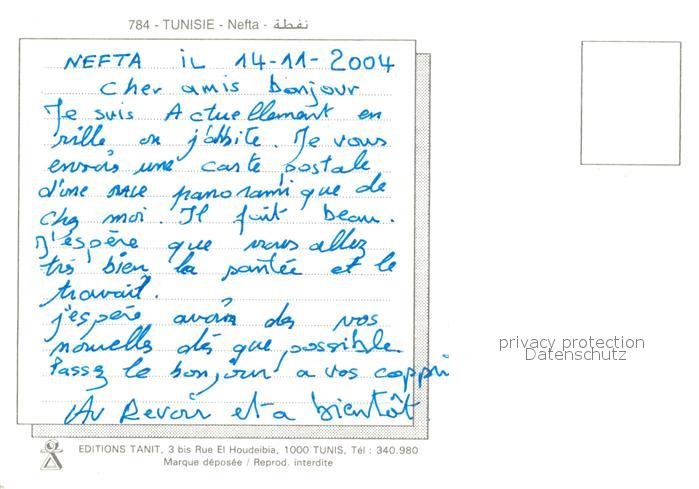 784 - TUNISIE - Nefta - نفطة
NEFTA iL 14-11-2004
Cher amis bonjour
Je suis Actuellement en
ville ou j'abbite. Je vous
envois une carte postale
d'une panoramique de
chez moi. Il fait beau.
J'espère que vous allez
très bien la santée et le
travail.
j'espère avoir des vos
nouvelles dès que possible
Passez le bonjour a vos
Au Revoir et a bientôt.
privacy protection
Datenschutz
EDITIONS TANIT, 3 bis Rue El Houdeibia, 1000 TUNIS, Tél : 340.980
Marque déposée / Reprod. interdite